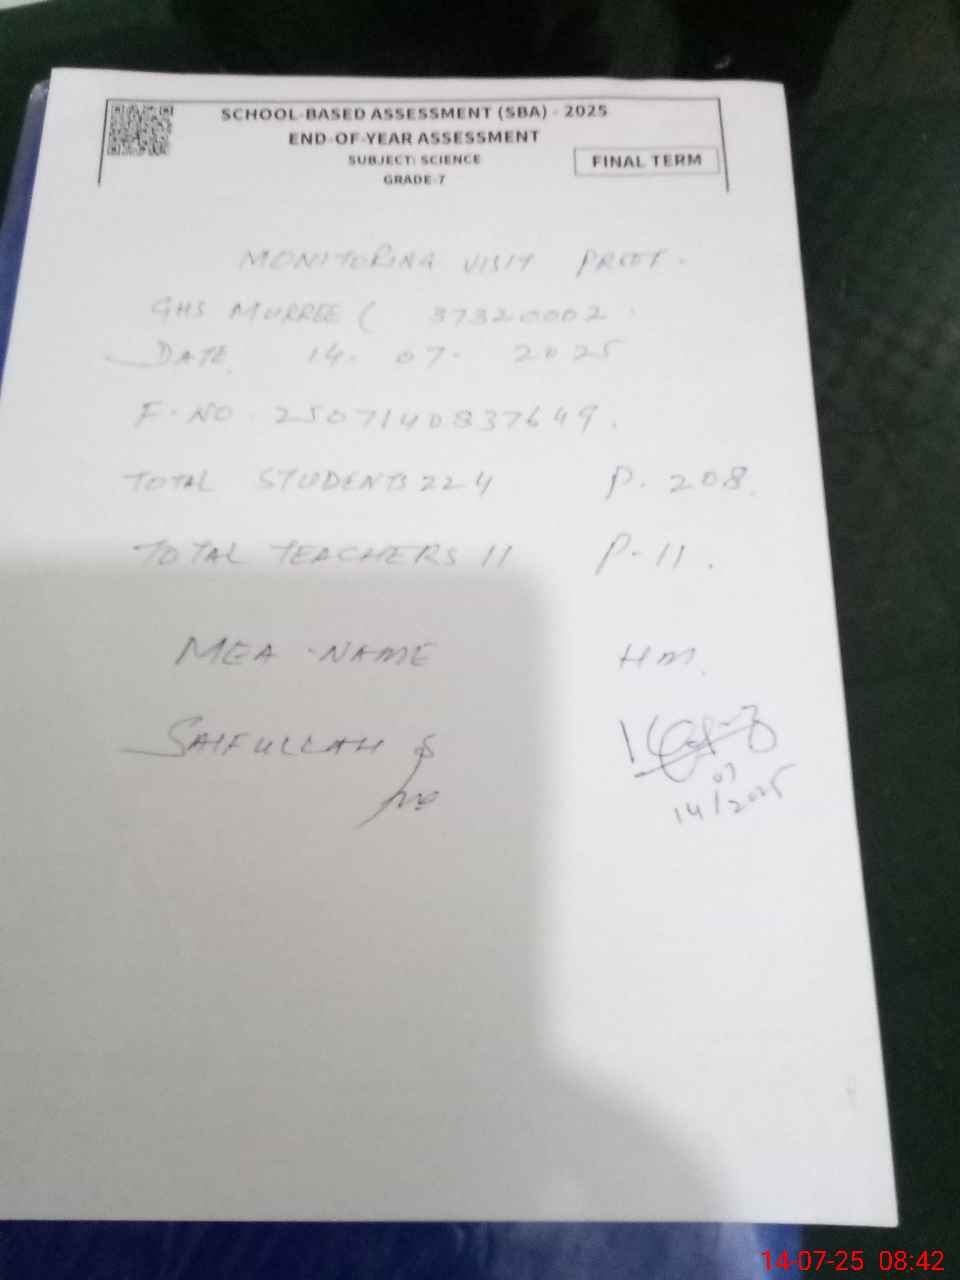 SCHOOL-BASED ASSESSMENT (SBA) - 2025
END-OF-YEAR ASSESSMENT
SUBJECT: SCIENCE
FINAL TERM
GRADE-7
MONITORING VISIT PROOF.
GHS MURREE ( 37320002
DATE 14-07-2025
F.NO. 250714083764 9.
TOTAL STUDENTS 224 P. 208.
TOTAL TEACHERS 11 P-11.
MEA -NAME HM.
SAIFULLAH
14/07/2025
14-07-25 08:42